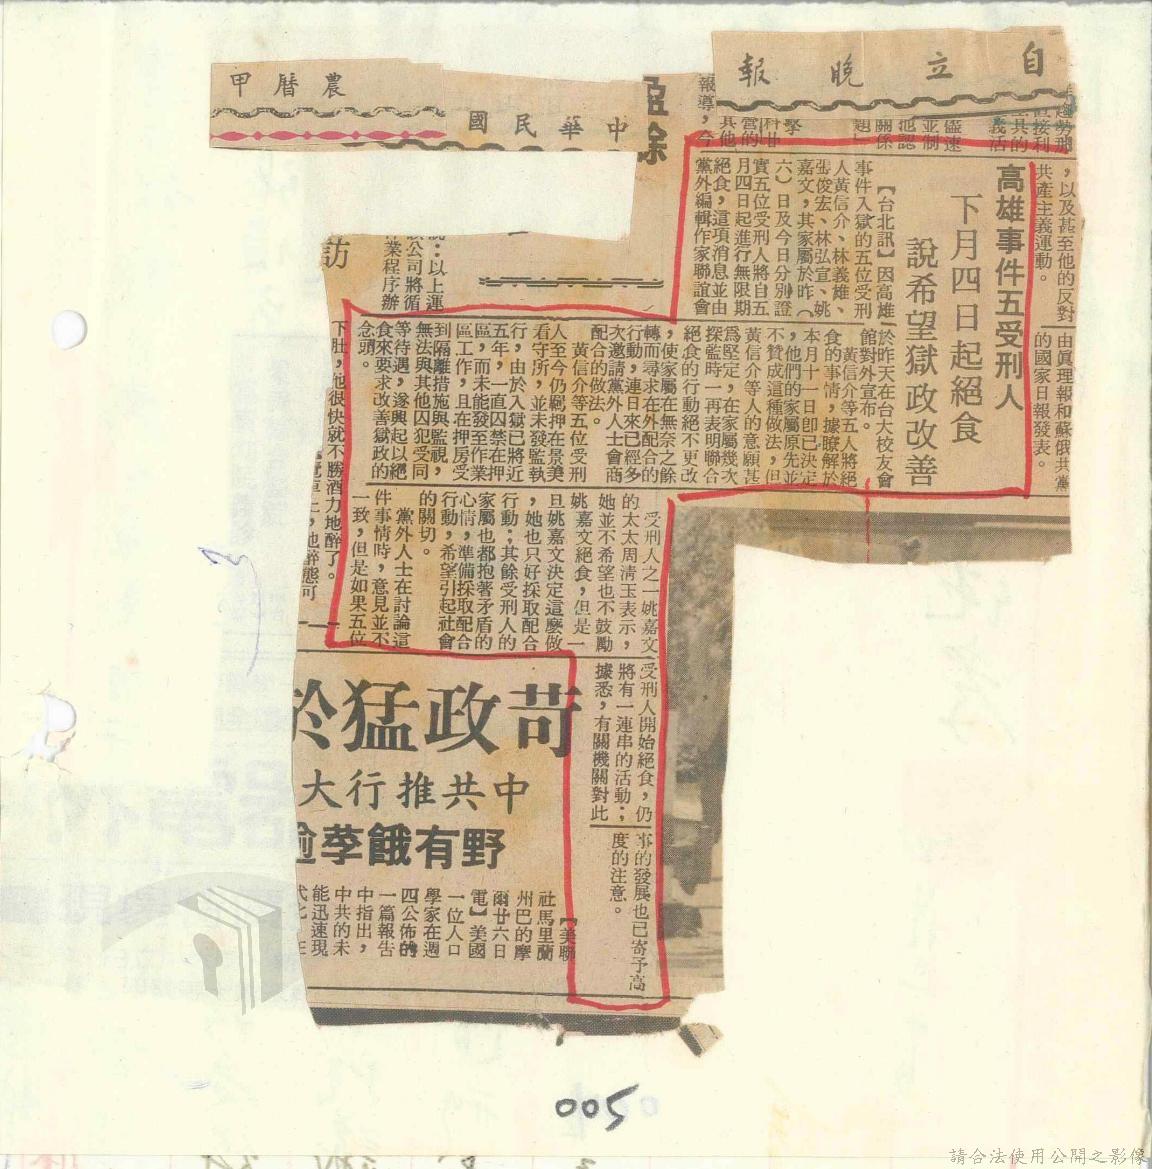 自立晚報
中華民國
農曆甲
，以及甚至他的反對
共產主義運動。
由眞理報和蘇俄共黨
的國家日報發表。
高雄事件五受刑人
下月四日起絕食
說希望獄政改善
【台北訊】因高雄
事件入獄的五位受刑
人黃信介、林義雄、
張俊宏、林弘宣、姚
嘉文，其家屬於昨（
六）日及今日分別證
實五位受刑人將自五
月四日起進行無限期
絕食，這項消息並由
黨外編輯作家聯誼會
於昨天在台大校友會
館對外宣布。
黃信介等五人將絕
食的事情，據瞭解於
本月十一日卽已決定
，他們的家屬原先並
不贊成這種做法，但
黃信介等人的意願甚
爲堅定，在家屬幾次
探監時一再表明聯合
絕食的行動絕不更改
，使家屬在無奈之餘
轉而尋求在外配合的
行動，連日來已經多
次邀請黨外人士會商
配合的做法。
黃信介等五位受刑
人至今仍羈押在景美
看守所，並未發監執
行，由於入獄已將近
五年，一直囚禁在押
區，而未能發至作業
區工作，且在押房受
到隔離措施與監視，
無法與其他囚犯受同
等待遇，遂興起以絕
食來要求改善獄政的
念頭。
受刑人之一姚嘉文
的太太周淸玉表示，
她並不希望也不鼓勵
姚嘉文絕食，但是一
旦姚嘉文決定這麼做
，她也只好採取配合
行動；其餘受刑人的
家屬也都抱著矛盾的
心情，準備採取配合
行動，希望引起社會
的關切。
黨外人士在討論這
件事情時，意見並不
一致，但是如果五位
受刑人開始絕食，仍
將有一連串的活動；
據悉，有關機關對此
事的發展也已寄予高
度的注意。
訪
：以上運
公司將循
作業程序辦
下肚，他很快就不勝酒力地醉了。
上，他醉態可
苛政猛於
中共推行大
野有餓莩
【美聯
社馬里蘭
州巴的摩
爾廿六日
電】美國
一位人口
學家在週
四公佈的
一篇報告
中指出，
中共的未
能迅速現
005
請合法使用公開之影像